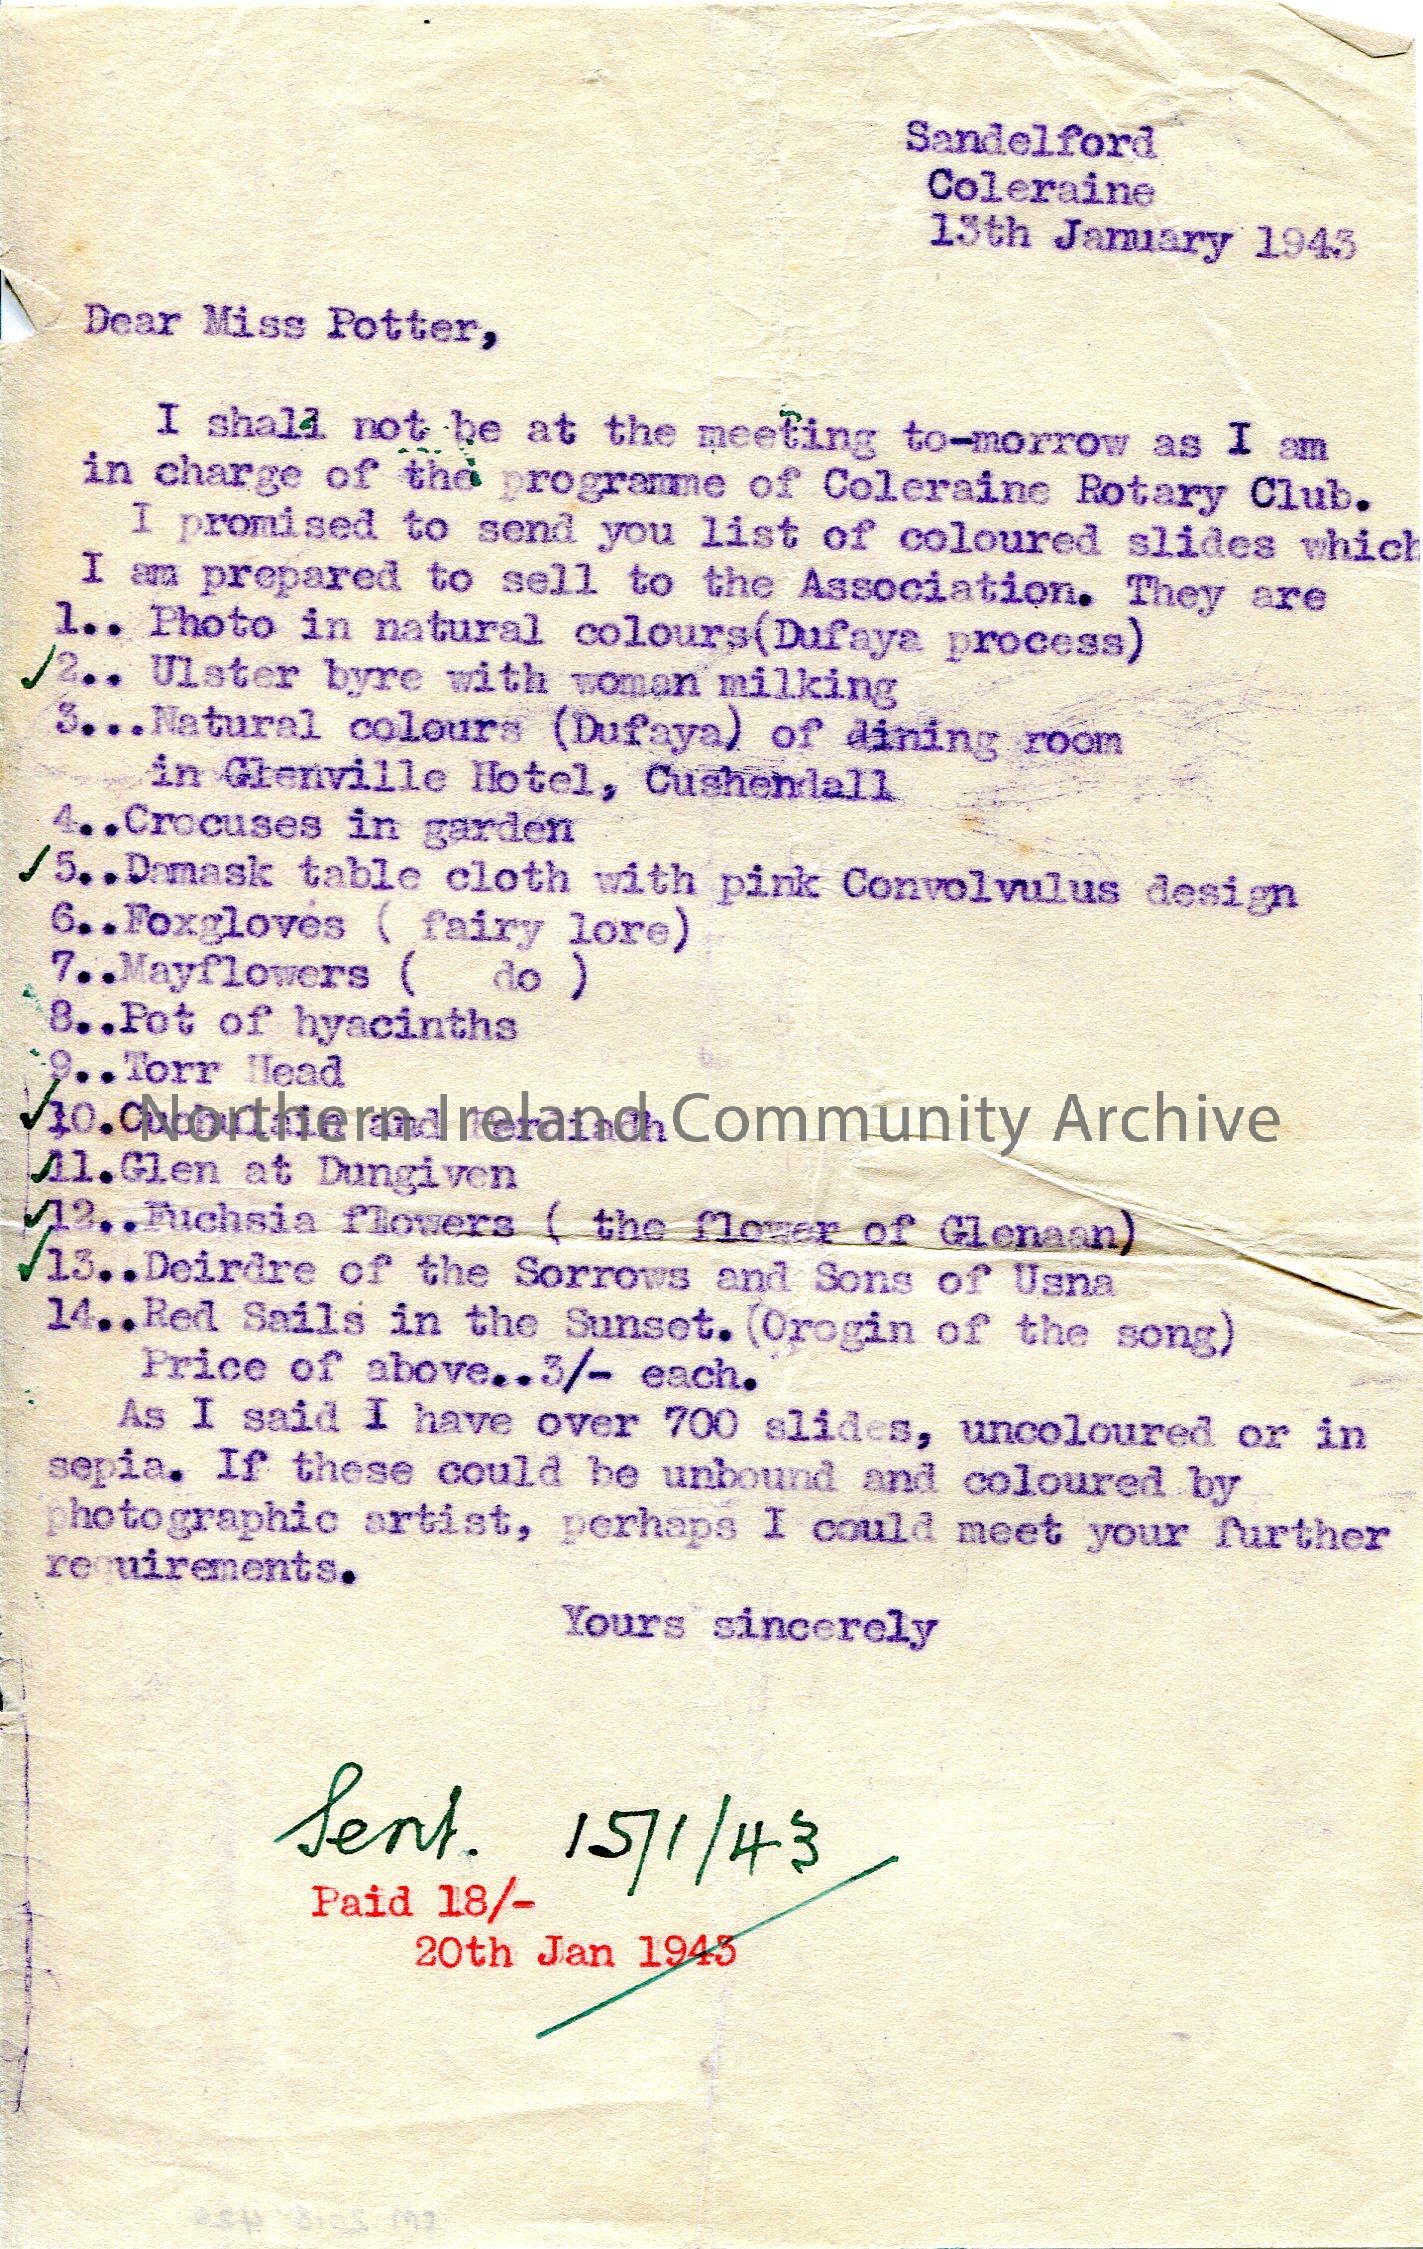 Sandelford
Coleraine
13th January 1943
Dear Miss Potter,
I shall not be at the meeting to-morrow as I am
in charge of the programme of Coleraine Rotary Club.
I promised to send you list of coloured slides which
I am prepared to sell to the Association. They are
1.. Photo in natural colours(Dufaya process)
✓2.. Ulster byre with woman milking
3...Natural colours (Dufaya) of dining room
in Glenville Hotel, Cushendall
4..Crocuses in garden
✓5...Damask table cloth with pink Convolvulus design
6..Foxgloves ( fairy lore)
7..Mayflowers ( do )
8..Pot of hyacinths
9..Torr Head
✓10.Cuchulain and Ferdiadh
Northern Ireland Community Archive
✓11.Glen at Dungiven
✓12..Fuchsia flowers ( the flower of Glenaan)
✓13..Deirdre of the Sorrows and Sons of Usna
14..Red Sails in the Sunset.(Orogin of the song)
Price of above..3/- each.
As I said I have over 700 slides, uncoloured or in
sepia. If these could be unbound and coloured by
photographic artist, perhaps I could meet your further
requirements.
Yours sincerely
Sent. 15/1/43
Paid 18/-
20th Jan 1943